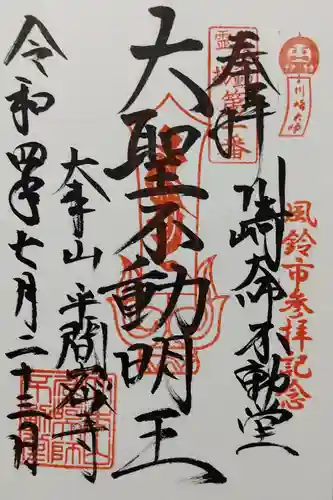 川崎大師
風鈴市参拝記念
奉拝
霊場第一番
川崎大師不動堂
大聖不動明王
大本山 平間寺
令和四年七月二十三日